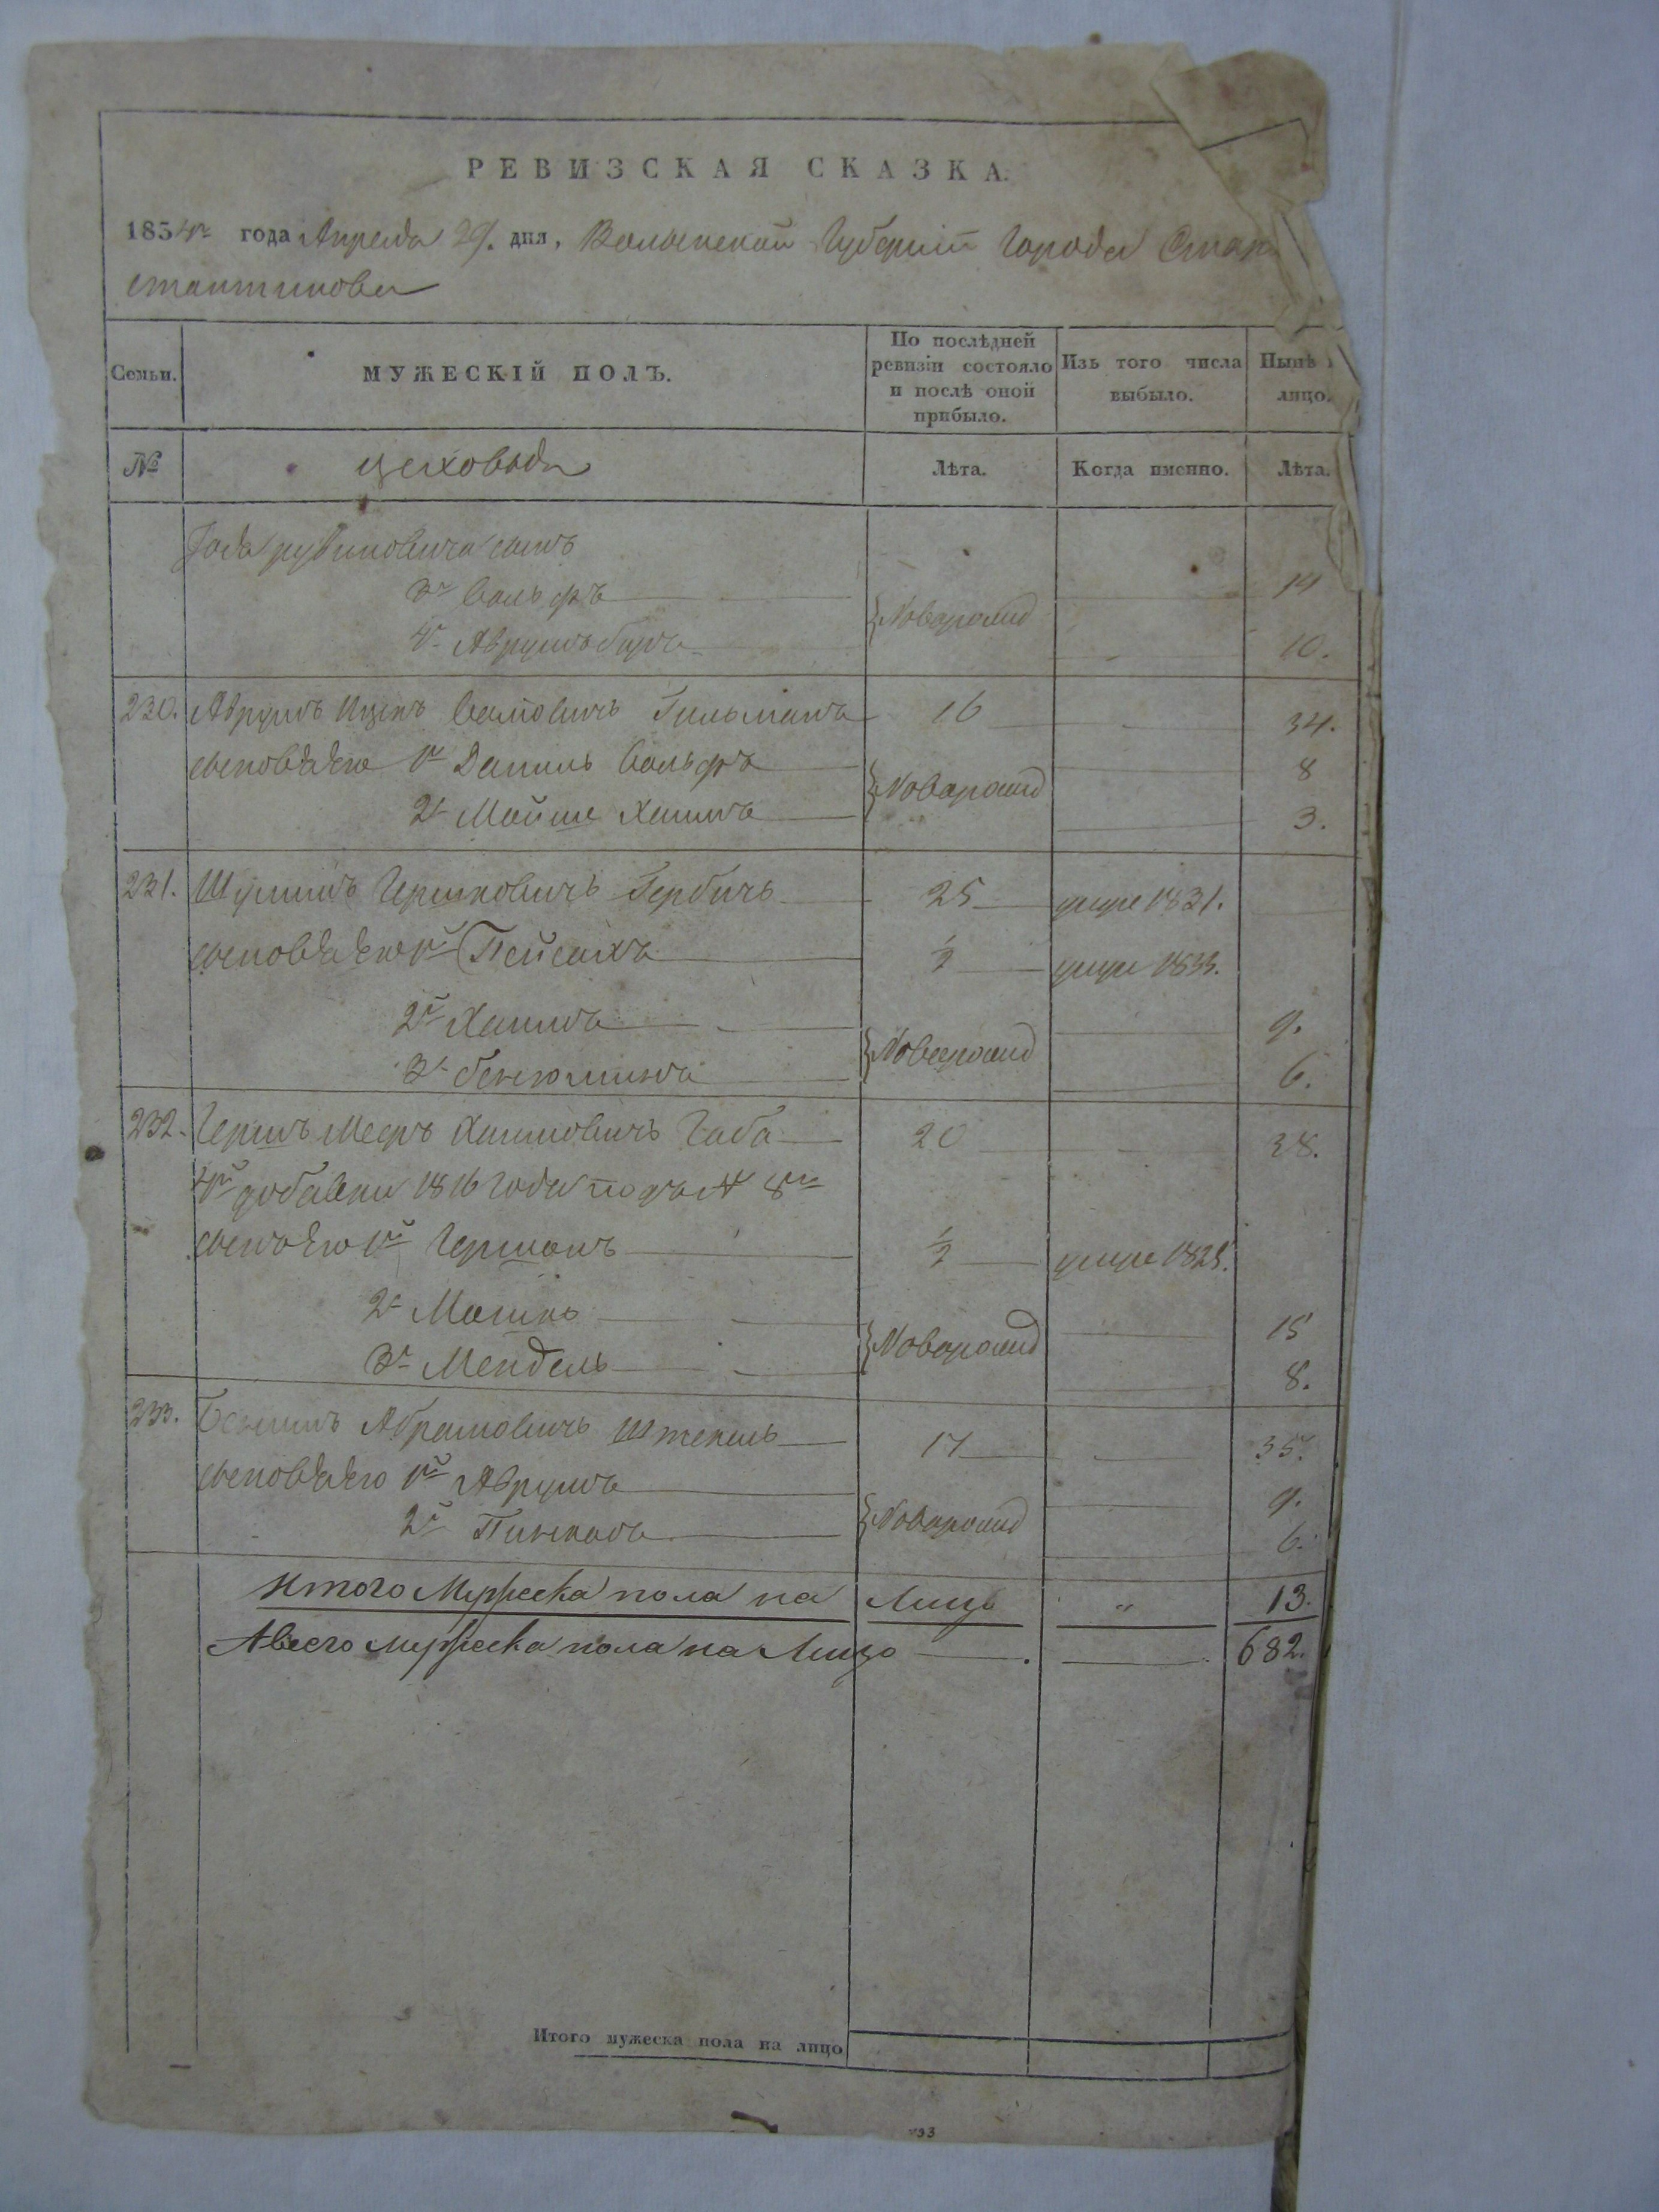 РЕВИЗСКАЯ СКАЗКА.
1834го года Апреля 29. дня, Волынской Губерніи Города Стар
стантинова
Семьи. МУЖЕСКІЙ ПОЛЪ. По послѣдней ревизіи состояло и послѣ оной прибыло. Изъ того числа выбыло. Нынѣ лицо.
№ цеховыя Лѣта. Когда именно. Лѣта.
сынъ
3й Вольфъ 14
4й Аврумъ Новорожд 10.
230. Аврумъ Ицекъ Гильманъ 16 34.
сыновья Его 1й Даниль Вольфъ 8
2й Мойше Хаимъ Новорожд 3.
231. Шулимъ Гершковичъ Гербичъ 25 умре 1831.
сыновья Его 1й Пейсахъ ½ умре 1833.
2й Хаимъ 9.
3й Бенюминъ Новорожд 6.
232. Гершъ Мееръ Хаимовичъ Габа 20 38.
4й добавки 1816 Года подъ № 8м
сынъ Его 1й Гершонъ ½ умре 1825.
2й Мошко 15
3й Мендель Новорожд 8.
233. Абрамовичъ Штекель 17 35.
сыновья Его 1й Аврумъ 9.
2й Пинкасъ Новорожд 6.
Итого Мужеска пола на Лицо " 13.
А всего мужеска пола на Лицо 682.
Итого мужеска пола на лицо